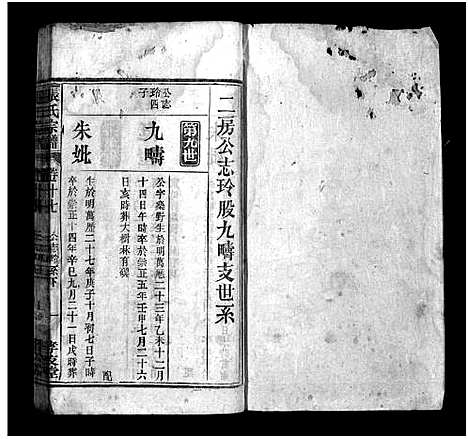 二房公志玲股九疇支世系
第九世
公志
玲四
子
九疇
公字榮野生於明萬歷二十三年乙未十二月
十四日午時卒於崇正五年壬申七月二十六
日亥時葬大樹林有碑
朱妣
生於明萬歷二十七年庚子十月初七日子時
卒於崇正十四年辛巳九月二十一日戌時葬
配
張氏宗譜
卷十七
公志玲系下
一
孝友堂